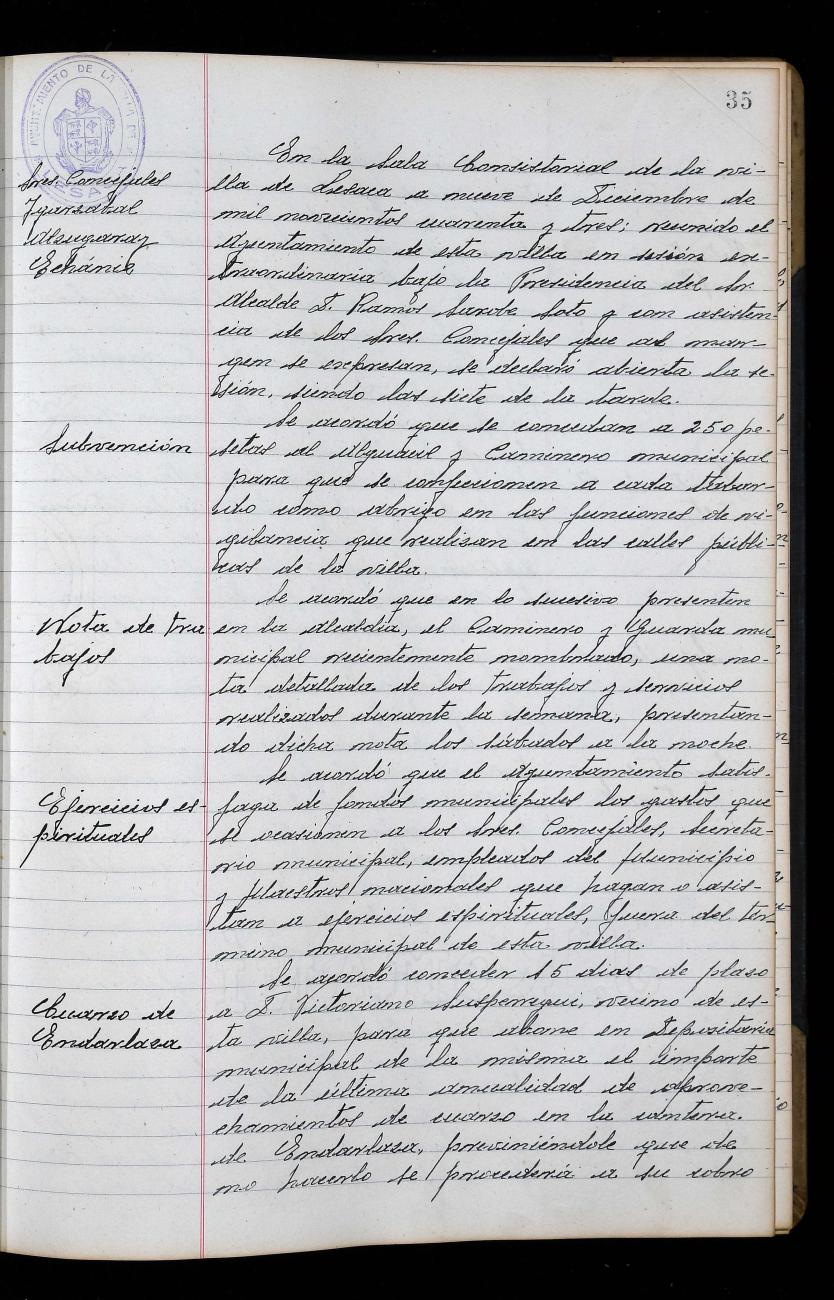 35
AYUNTAMIENTO DE LA
Sres. Concejales
Igarzabal
Alzugaray
Echániz
En la Sala Consistorial de la vi-
lla de Lesaca a nueve de Diciembre de
mil novecientos cuarenta y tres; reunido el
Ayuntamiento de esta villa en sesión ex-
traordinaria bajo la Presidencia del Sr.
Alcalde D. Ramos Sarobe Soto y con asisten-
cia de los Sres. Concejales que al mar-
gen se expresan, se declaró abierta la se-
sión, siendo las siete de la tarde.
Subvención
Se acordó que se concedan a 250 pe-
setas al Alguacil y Caminero municipal
para que se confeccionen a cada tabar-
do como abrigo en las funciones de vi-
gilancia que realizan en las calles públi-
cas de la villa.
Nota de tra
bajos
Se acordó que en lo sucesivo presenten
en la Alcaldía, el Caminero y Guarda mu
nicipal recientemente nombrado, una no-
ta detallada de los trabajos y servicios
realizados durante la semana, presentan-
do dicha nota los sábados a la noche.
Ejercicios es-
pirituales
Se acordó que el Ayuntamiento satis-
faga de fondos municipales los gastos que
se ocasionen a los Sres. Concejales, Secreta-
rio municipal, empleados del Municipio
y Maestros nacionales que hagan o asis-
tan a ejercicios espirituales, fuera del tér
mino municipal de esta villa.
Cuarzo de
Endarlaza
Se acordó conceder 15 dias de plazo
a D. Victoriano Susperregui, vecino de es-
ta villa, para que abone en Depositaria
municipal de la misma el importe
de la última anualidad de aprove-
chamientos de cuarzo en la cantera
de Endarlaza, previniéndole que de
no hacerlo se procederá a su cobro